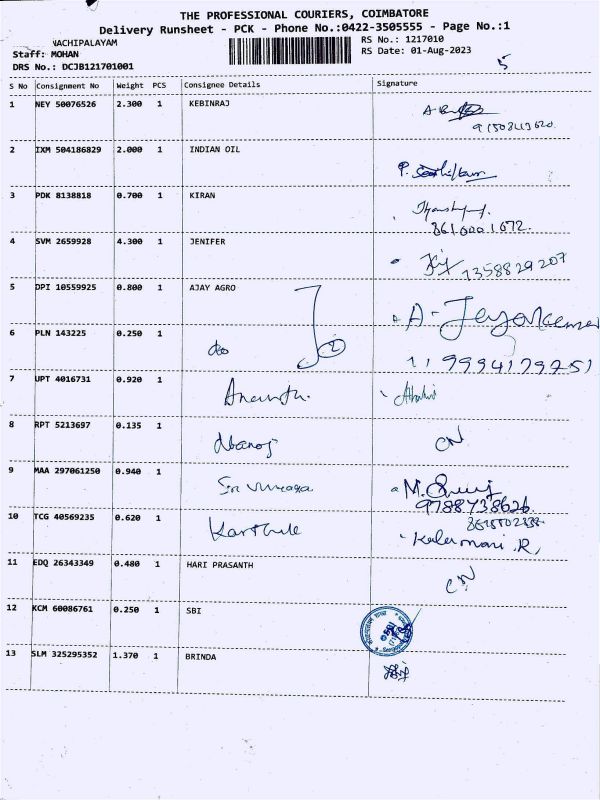 THE PROFESSIONAL COURIERS, COIMBATORE
Delivery Runsheet - PCK - Phone No.:0422-3505555 - Page No.:1
NACHIPALAYAM
RS No.: 1217010
Staff: MOHAN
RS Date: 01-Aug-2023
DRS No.: DCJB121701001
5
S No Consignment No Weight PCS Consignee Details Signature
1 NEY 50076526 2.300 1 KEBINRAJ
2 IXM 504186829 2.000 1 INDIAN OIL
3 PDK 8138818 0.700 1 KIRAN
4 SVM 2659928 4.300 1 JENIFER
7358829207
5 DPI 10559925 0.800 1 AJAY AGRO
A-Jeyakumar
6 PLN 143225 0.250 1 do 2
9994179751
7 UPT 4016731 0.920 1 Ananth.
8 RPT 5213697 0.135 1 Manoj
CN
9 MAA 297061250 0.940 1 Srinivasa
9788738626
10 TCG 40569235 0.620 1 Karthik
Kalaimani.R,
11 EDQ 26343349 0.480 1 HARI PRASANTH
CN
12 KCM 60086761 0.250 1 SBI
13 SLM 325295352 1.370 1 BRINDA